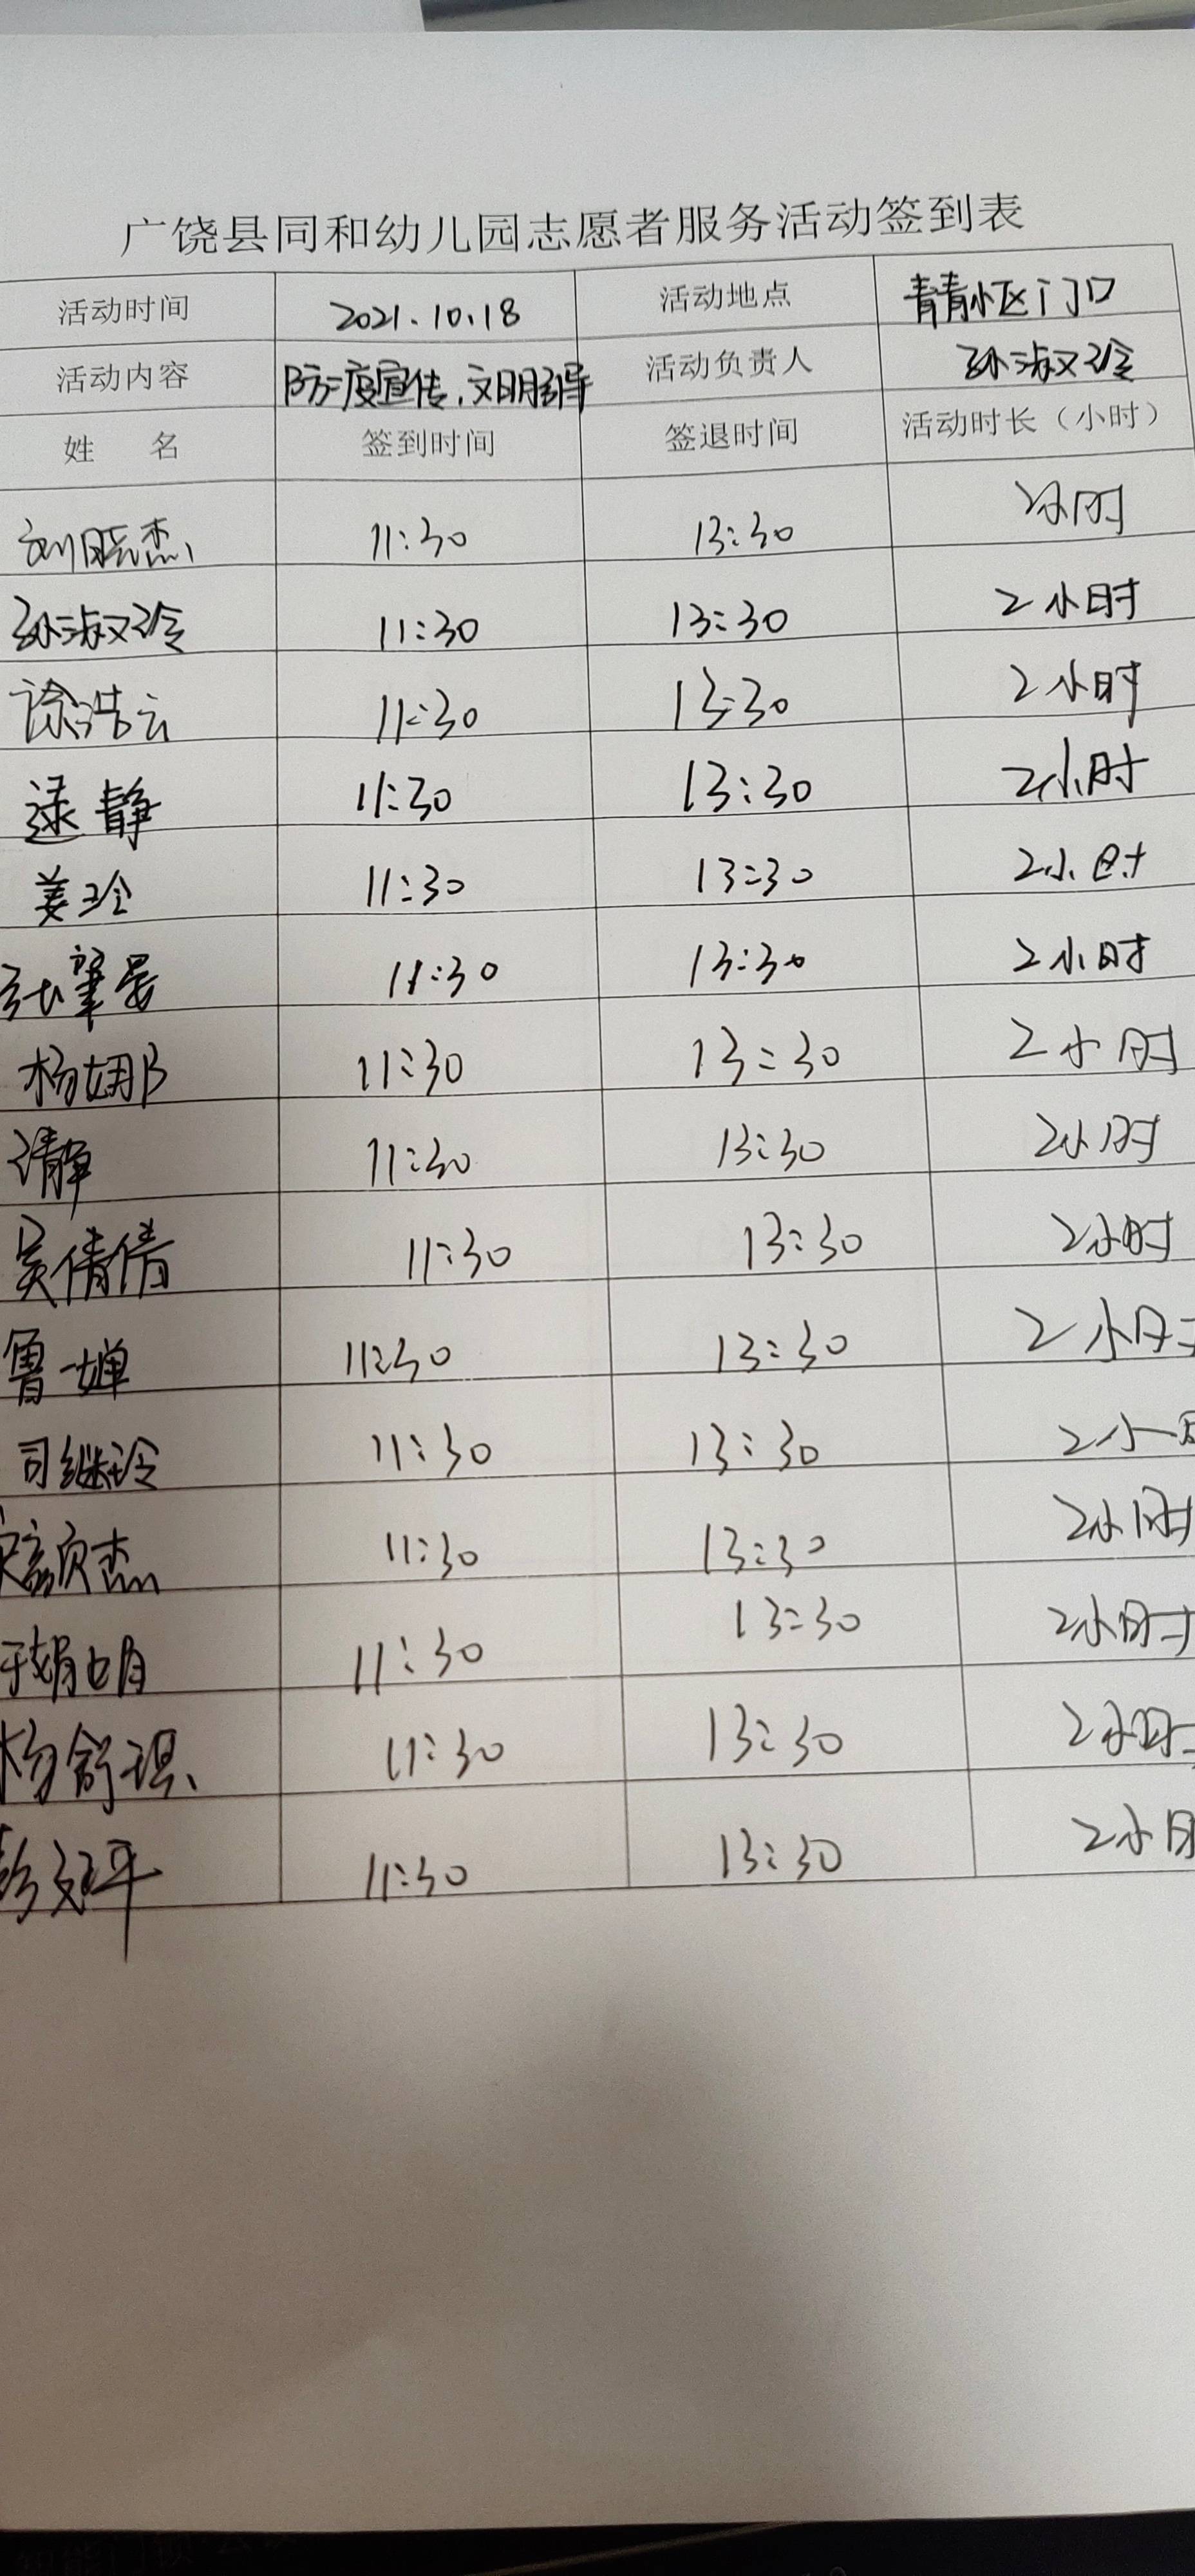 广饶县同和幼儿园志愿者服务活动签到表
活动时间 2021.10.18 活动地点 青青小区门口
活动内容 防疫宣传,文明引导 活动负责人 孙淑玲
姓 名 签到时间 签退时间 活动时长（小时）
刘晓杰 11:30 13:30 2小时
孙淑玲 11:30 13:30 2小时
徐浩云 11:30 13:30 2小时
逯静 11:30 13:30 2小时
姜玲 11:30 13:30 2小时
11:30 13:30 2小时
杨娜 11:30 13:30 2小时
11:30 13:30 2小时
吴倩倩 11:30 13:30 2小时
鲁一婵 11:30 13:30 2小时
司继玲 11:30 13:30 2小
杰 11:30 13:30 2小时
于娟娟 11:30 13:30 2小时
杨舒琪 11:30 13:30 2小时
彭文平 11:30 13:30 2小时